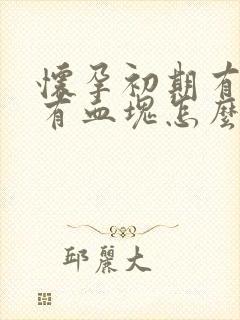 懷孕初期有
有血塊怎麼
邱麗大